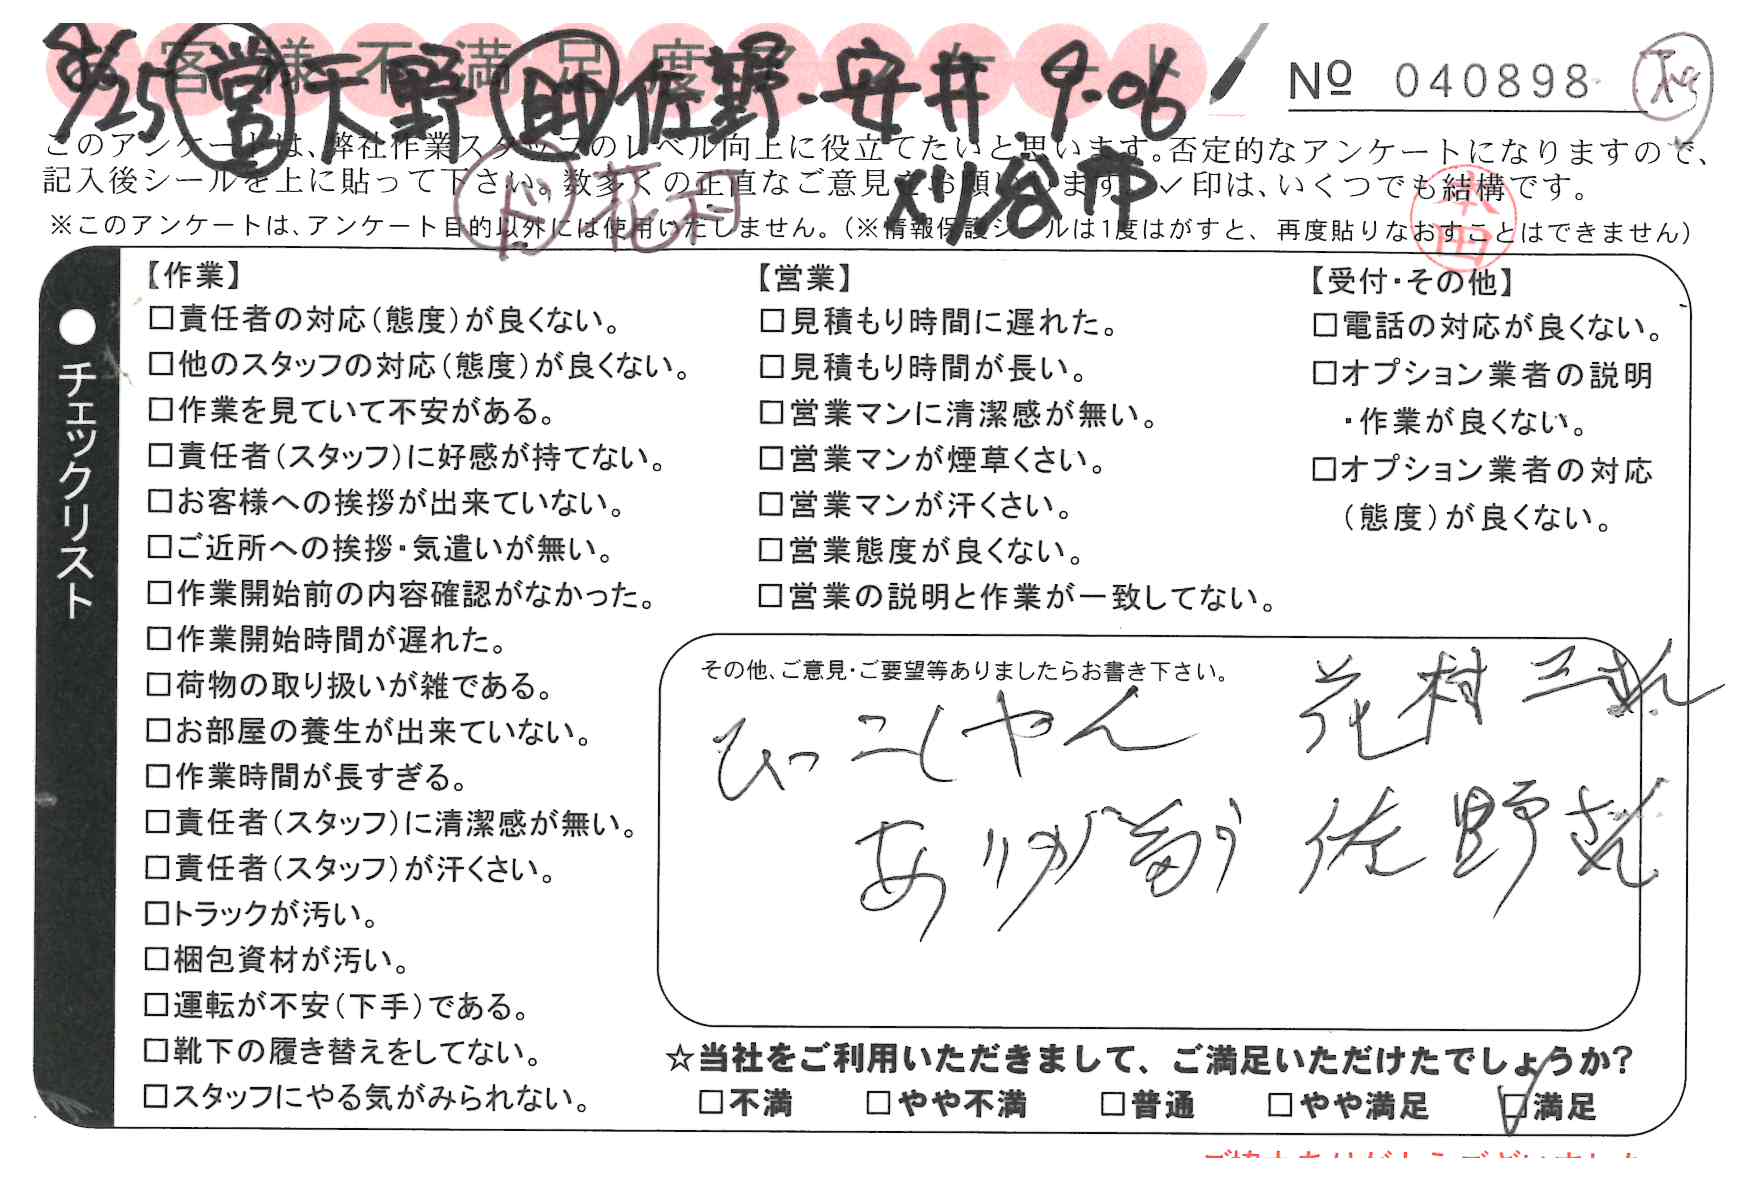 お客様不満足度アンケート
9/25 営 天野 助 佐野・安井 9-06
№ 040898
このアンケートは、弊社作業スタッフのレベル向上に役立てたいと思います。否定的なアンケートになりますので、
記入後シールを上に貼って下さい。数多くの正直なご意見をお願いします。✓印は、いくつでも結構です。
ド 花村 刈谷市
本田
※このアンケートは、アンケート目的以外には使用いたしません。（※情報保護シールは1度はがすと、再度貼りなおすことはできません）
●チェックリスト
【作業】
□責任者の対応（態度）が良くない。
□他のスタッフの対応（態度）が良くない。
□作業を見ていて不安がある。
□責任者（スタッフ）に好感が持てない。
□お客様への挨拶が出来ていない。
□ご近所への挨拶・気遣いが無い。
□作業開始前の内容確認がなかった。
□作業開始時間が遅れた。
□荷物の取り扱いが雑である。
□お部屋の養生が出来ていない。
□作業時間が長すぎる。
□責任者（スタッフ）に清潔感が無い。
□責任者（スタッフ）が汗くさい。
□トラックが汚い。
□梱包資材が汚い。
□運転が不安（下手）である。
□靴下の履き替えをしてない。
□スタッフにやる気がみられない。
【営業】
□見積もり時間に遅れた。
□見積もり時間が長い。
□営業マンに清潔感が無い。
□営業マンが煙草くさい。
□営業マンが汗くさい。
□営業態度が良くない。
□営業の説明と作業が一致してない。
【受付・その他】
□電話の対応が良くない。
□オプション業者の説明
・作業が良くない。
□オプション業者の対応
（態度）が良くない。
その他、ご意見・ご要望等ありましたらお書き下さい。
ひっこしやん 花村さん
ありが到 佐野さん
☆当社をご利用いただきまして、ご満足いただけたでしょうか？
□不満 □やや不満 □普通 □やや満足 ☑満足